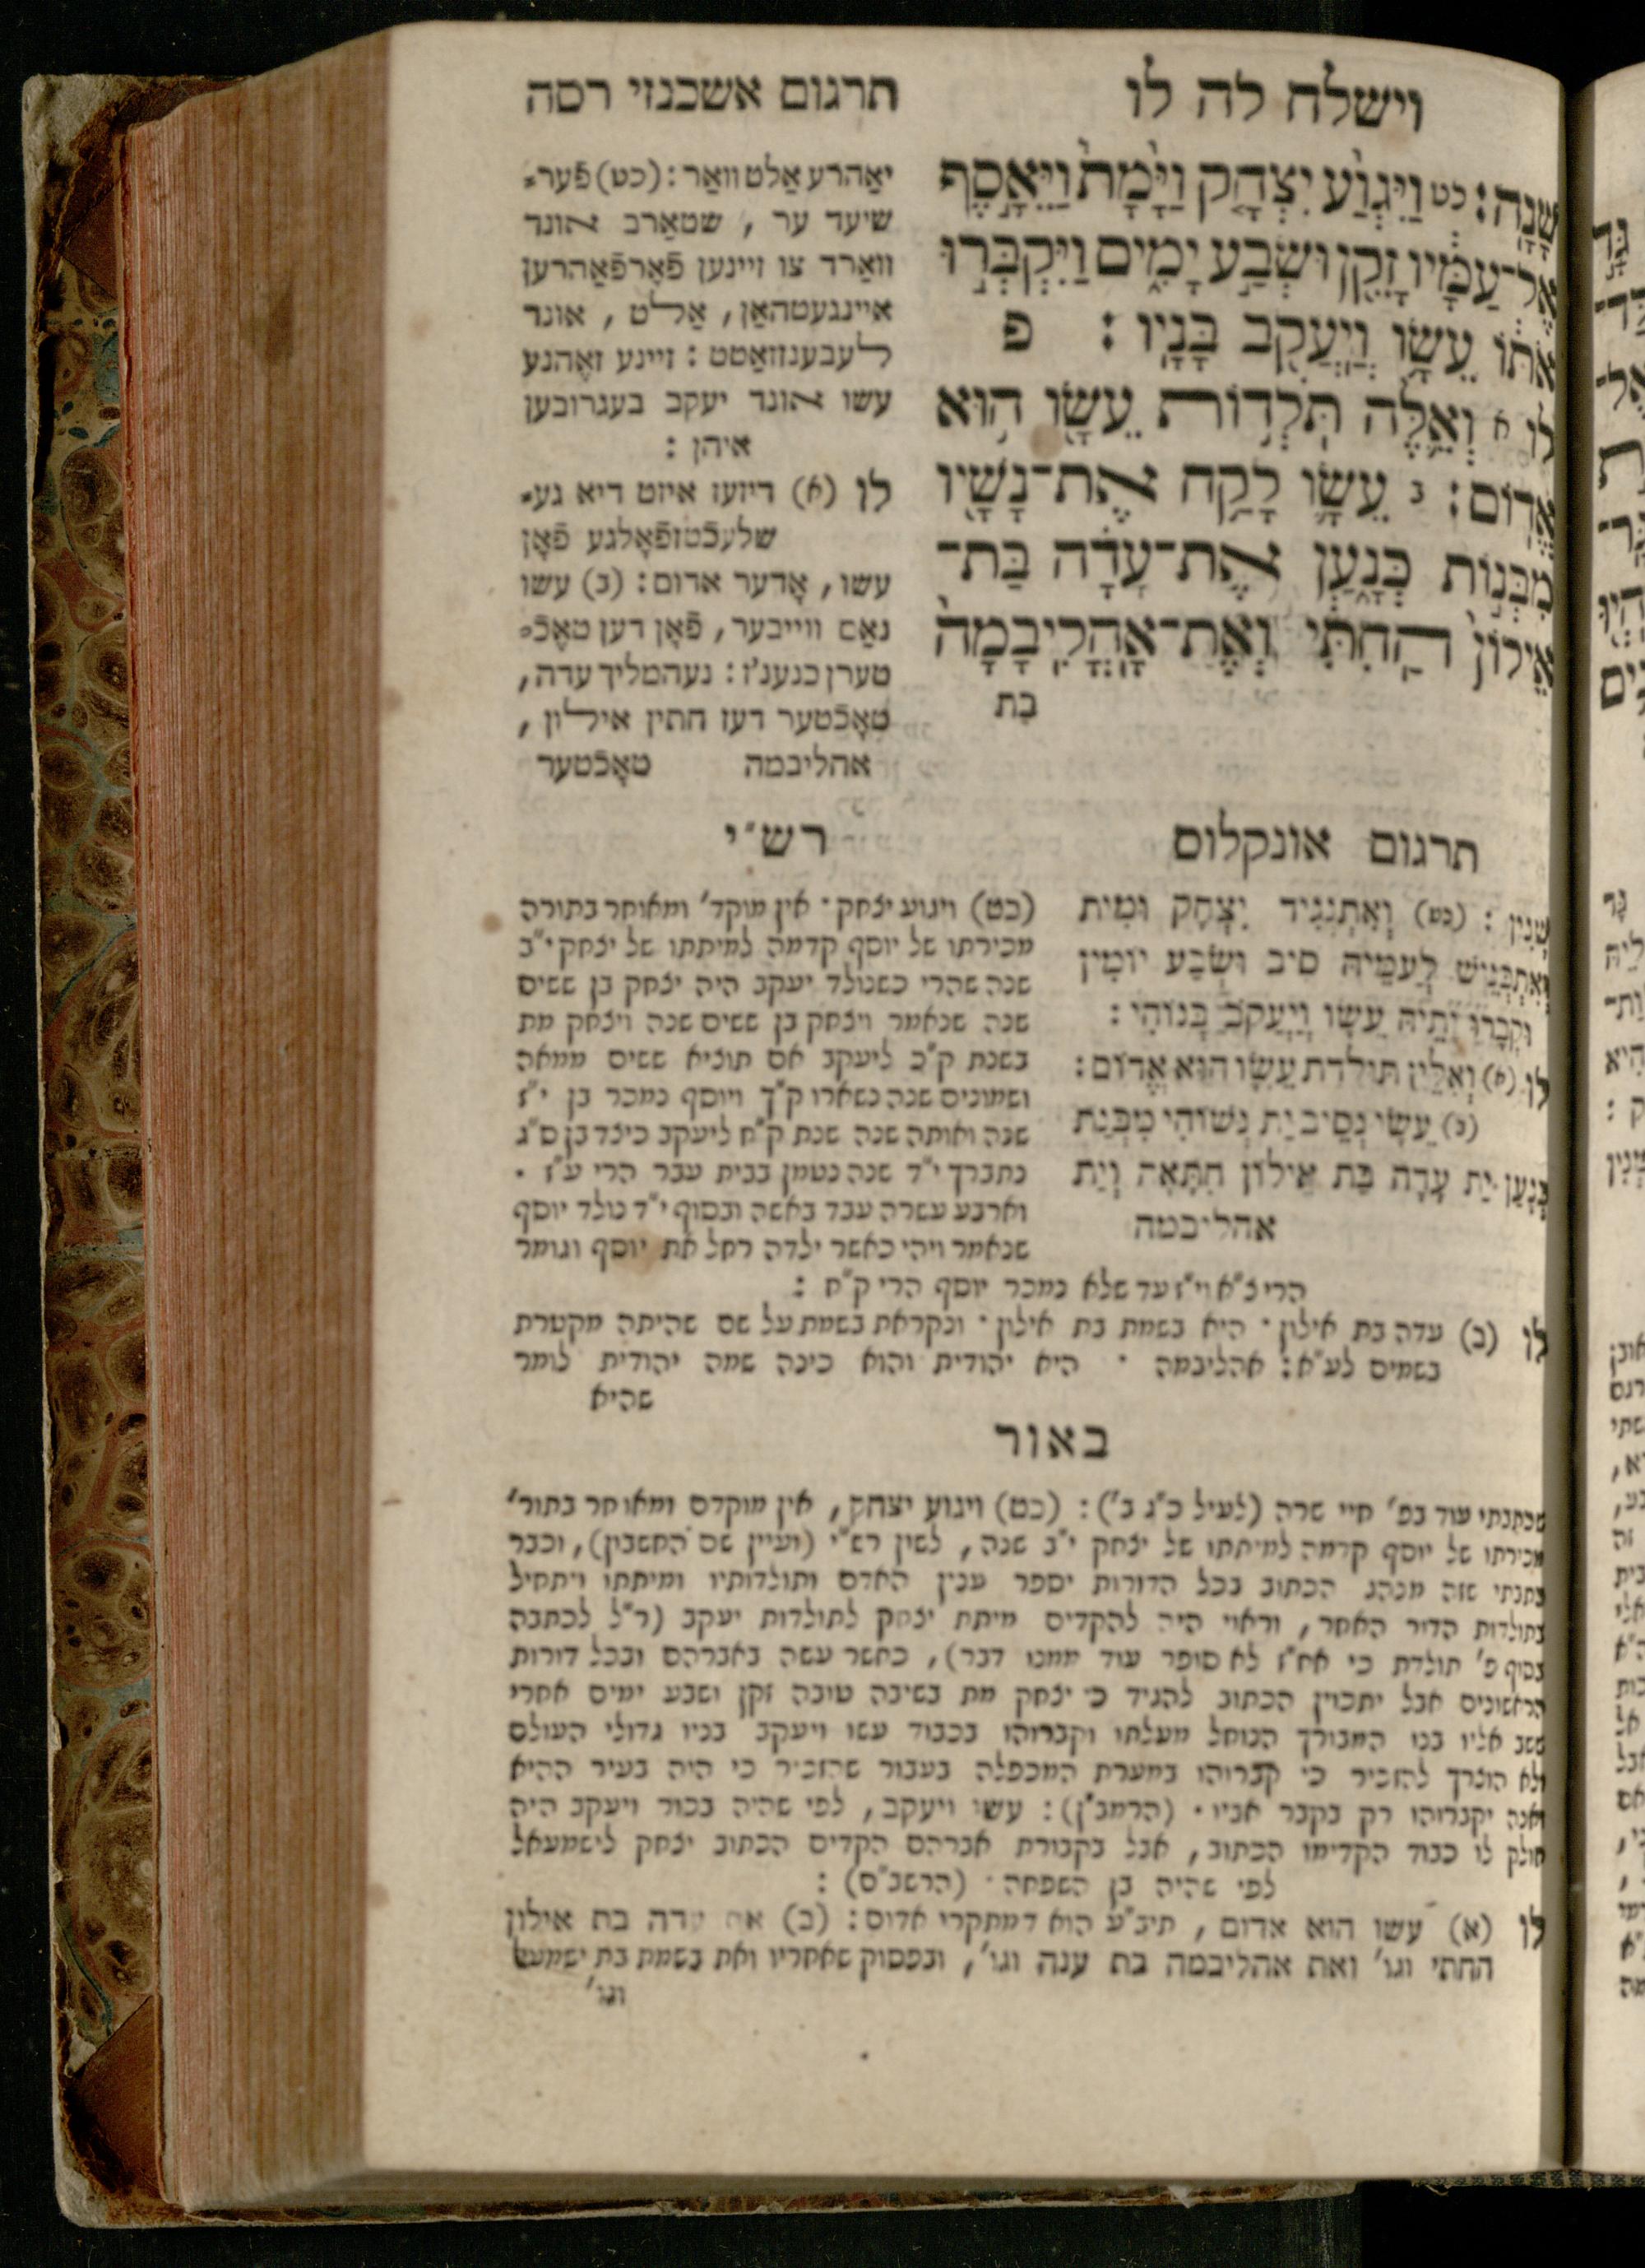 וישלח לה לו
תרגום אשכנזי רסה
שָׁנָה: כט וַיִּגְוַע יִצְחָק וַיָּמָת וַיֵּאָסֶף
אֶל־עַמָּיו זָקֵן וּשְׂבַע יָמִים וַיִּקְבְּרוּ
אֹתוֹ עֵשָׂו וְיַעֲקֹב בָּנָיו: פ
לו א וְאֵלֶּה תֹּלְדוֹת עֵשָׂו הוּא
אֱדוֹם: ב עֵשָׂו לָקַח אֶת־נָשָׁיו
מִבְּנוֹת כְּנָעַן אֶת־עָדָה בַּת־
אֵילוֹן הַחִתִּי וְאֶת־אָהֳלִיבָמָה
בת
יאַהרע אַלט וואַר: (כט) פֿער־
שיעד ער, שטאַרב אונד
וואַרד צו זיינען פֿאָרפֿאַהרען
איינגעטהאַן, אַלט, אונד
לעבענזזאַטט: זיינע זאָהנע
עשו אונד יעקב בעגרובען
איהן:
לו (א) דיזעז איזט דיא גע־
שלעכֿטזפֿאָלגע פֿאָן
עשו, אָדער אדום: (ב) עשו
נאַם ווייבער, פֿאָן דען טאָכֿ־
טערן כנענ'ז: נעהמליך עדה,
טאָכֿטער דעז חתין אילון,
אהליבמה טאָכֿטער
תרגום אונקלוס
שְׁנִין: (כט) וְאִתְנְגִיד יִצְחָק וּמִית
וְאִתְכְּנֵישׁ לְעַמֵּיהּ סִיב וּשְׂבַע יוֹמִין
וּקְבָרוּ יָתֵיהּ עֵשָׂו וְיַעֲקֹב בְּנוֹהִי:
לו (א) וְאִלֵּין תּוּלְדַת עֵשָׂו הוּא אֱדוֹם:
(ב) עֵשָׂו נְסֵיב יַת נְשׁוֹהִי מִבְּנַת
כְּנָעַן יַת עָדָה בַּת אֵילוֹן חִתָּאָה וְיַת
אהליבמה
רש"י
(כט) ויגוע יצחק · אין מוקד' ומאוחר בתורה
מכירתו של יוסף קדמה למיתתו של יצחק י"ב
שנה שהרי כשנולד יעקב היה יצחק בן ששים
שנה שנאמר ויצחק בן ששים שנה ויצחק מת
בשנת ק"כ ליעקב אם תוציא ששים ממאה
ושמונים שנה נשארו ק"ך ויוסף נמכר בן י"ז
שנה ואותה שנה שנת ק"ח ליעקב כיצד בן ס"ג
נתברך י"ד שנה נטמן בבית עבר הרי ע"ז ·
וארבע עשרה עבד באשה ובסוף י"ד נולד יוסף
שנאמר ויהי כאשר ילדה רחל את יוסף וגומר
הרי צ"א וי"ז עד שלא נמכר יוסף הרי ק"ח:
לו (ב) עדה בת אילון · היא בשמת בת אילון · ונקראת בשמת על שם שהיתה מקטרת
בשמים לע"א: אהליבמה · היא יהודית והוא כינה שמה יהודית לומר
שהיא
באור
שכתבתי עוד בפ' חיי שרה (לעיל כ"ג ב'): (כט) ויגוע יצחק, אין מוקדם ומאוחר בתור'
מכירתו של יוסף קדמה למיתתו של יצחק י"ב שנה, לשון רש"י (ועיין שם החשבון), וכבר
כתבתי שזה מנהג הכתוב בכל הדורות יספר ענין האדם ותולדותיו ומיתתו ויתחיל
בתולדות הדור האחר, וראוי היה להקדים מיתת יצחק לתולדות יעקב (ר"ל לכתבה
בסוף פ' תולדת כי אח"ז לא סופר עוד ממנו דבר), כאשר עשה באברהם ובכל דורות
הראשונים אבל יתכוין הכתוב להגיד כי יצחק מת בשיבה טובה זקן ושבע ימים אחרי
ששב אליו בנו המבורך הנוחל מעלתו וקברוהו בכבוד עשו ויעקב בניו גדולי העולם
ולא הוצרך להזכיר כי קברוהו במערת המכפלה בעבור שהזכיר כי היה בעיר ההיא
ואנה יקברוהו רק בקבר אביו · (הרמב"ן): עשו ויעקב, לפי שהיה בכור ויעקב היה
חולק לו כבוד הקדימו הכתוב, אבל בקבורת אברהם הקדים הכתוב יצחק לישמעאל
לפי שהיה בן השפחה · (הרשב"ם):
לו (א) עשו הוא אדום, תיב"ע הוא דמתקרי אדום: (ב) את עדה בת אילון
החתי וגו' ואת אהליבמה בת ענה וגו', ובפסוק שאחריו ואת בשמת בת ישמעאל
וגו'